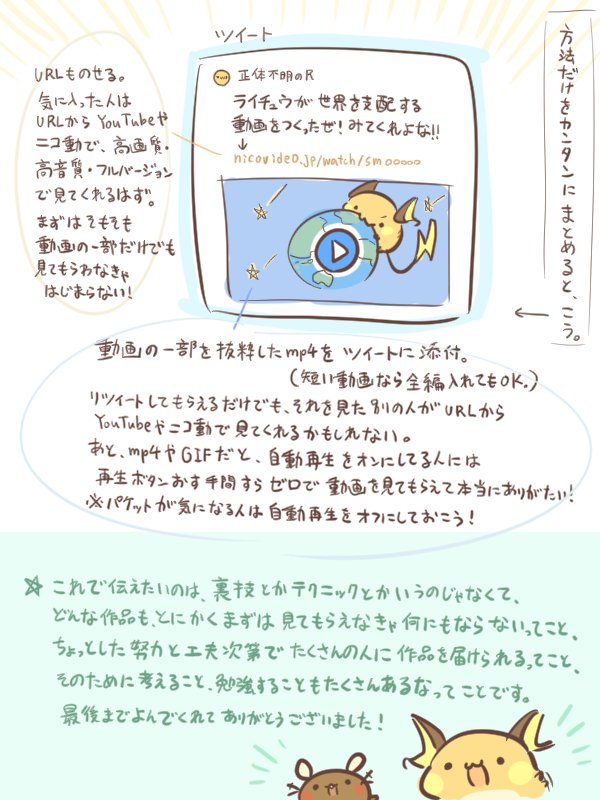 方法だけをカンタンにまとめると、こう。
ツイート
正体不明のR
ライチュウが世界を支配する
動画をつくったぜ!みてくれよな!!
↓
nicovideo.jp/watch/smooooo
URLものせる。
気に入った人は
URLからYouTubeや
ニコ動で、高画質・
高音質・フルバージョン
で見てくれるはず。
まずはそもそも
動画の一部だけでも
見てもらわなきゃ
はじまらない!
動画の一部を抜粋したmp4をツイートに添付。
(短い動画なら全編入れてもOK.)
リツイートしてもらえるだけでも、それを見た別の人がURLから
YouTubeやニコ動で見てくれるかもしれない。
あと、mp4やGIFだと、自動再生をオンにしてる人には
再生ボタンおす手間すらゼロで動画を見てもらえて本当にありがたい!
※パケットが気になる人は自動再生をオフにしておこう!
☆これで伝えたいのは、裏技とかテクニックとかいうのじゃなくて、
どんな作品も、とにかくまずは見てもらえなきゃ何にもならないってこと、
ちょっとした努力と工夫次第でたくさんの人に作品を届けられるってこと、
そのために考えること、勉強することもたくさんあるなってことです。
最後までよんでくれてありがとうございました!